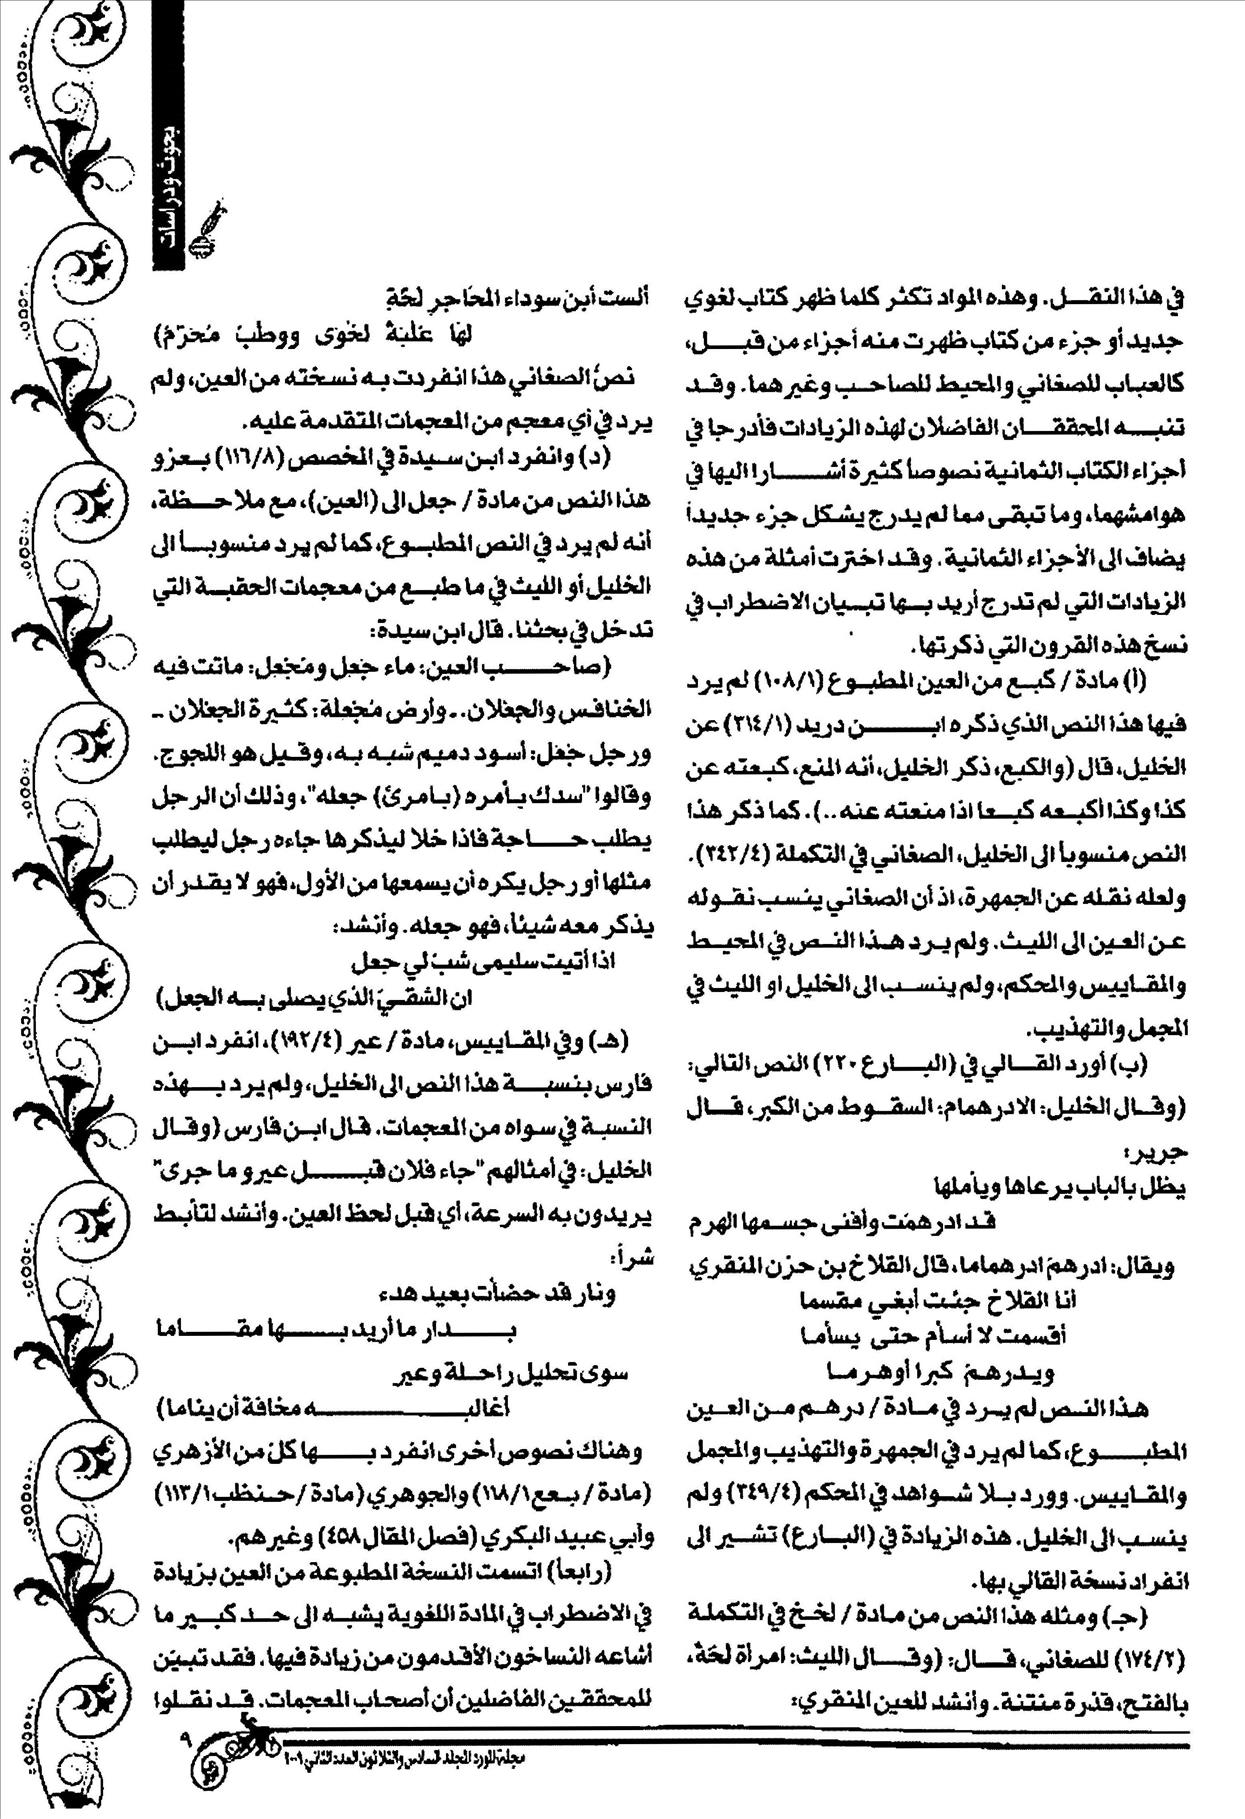 بحوث ودراسات
في هذا النقل. وهذه المواد تكثر كلما ظهر كتاب لغوي
جديد أو جزء من كتاب ظهرت منه أجزاء من قبل،
كالعباب للصغاني والمحيط للصاحب وغيرهما. وقد
تنبه المحققان الفاضلان لهذه الزيادات فأدرجا في
أجزاء الكتاب الثمانية نصوصاً كثيرة أشارا اليها في
هوامشهما، وما تبقى مما لم يدرج يشكل جزء جديداً
يضاف الى الأجزاء الثمانية. وقد اخترت أمثلة من هذه
الزيادات التي لم تدرج أريد بها تبيان الاضطراب في
نسخ هذه القرون التي ذكرتها.
(أ) مادة / كبع من العين المطبوع (١٠٨/١) لم يرد
فيها هذا النص الذي ذكره ابن دريد (٣١٤/١) عن
الخليل، قال (والكبع، ذكر الخليل، أنه المنع، كبعته عن
كذا وكذا أكبعه كبعا اذا منعته عنه ..). كما ذكر هذا
النص منسوباً الى الخليل، الصغاني في التكملة (٣٤٢/٤).
ولعله نقله عن الجمهرة، اذ أن الصغاني ينسب نقوله
عن العين الى الليث. ولم يرد هذا النص في المحيط
والمقاييس والمحكم، ولم ينسب الى الخليل او الليث في
المجمل والتهذيب.
(ب) أورد القالي في (البارع ٢٢٠) النص التالي:
(وقال الخليل: الادرهمام: السقوط من الكبر، قال
جرير:
يظل بالباب يرعاها ويأملها
قد ادرهمّت وأفنى جسمها الهرم
ويقال: ادرهمّ ادرهماما، قال القلاخ بن حزن المنقري
أنا القلاخ جئت أبغي مقسما
أقسمت لا أسأم حتى يسأما
ويدرهمّ كبرا أو هرما
هذا النص لم يرد في مادة / درهم من العين
المطبوع، كما لم يرد في الجمهرة والتهذيب والمجمل
والمقاييس. وورد بلا شواهد في المحكم (٣٤٩/٤) ولم
ينسب الى الخليل. هذه الزيادة في (البارع) تشير الى
انفراد نسخة القالي بها.
(جـ) ومثله هذا النص من مادة / لخخ في التكملة
(١٧٤/٢) للصغاني، قال: (وقال الليث: امرأة لخّة،
بالفتح، قذرة منتنة. وأنشد للعين المنقري:
ألست أبن سوداء المحاجر لخّة
لها علبة لخوى ووطب مخرّم)
نصُّ الصغاني هذا انفردت به نسخته من العين، ولم
يرد في أي معجم من المعجمات المتقدمة عليه.
(د) وانفرد ابن سيدة في المخصص (١١٦/٨) بعزو
هذا النص من مادة / جعل الى (العين)، مع ملاحظة،
أنه لم يرد في النص المطبوع، كما لم يرد منسوباً الى
الخليل أو الليث في ما طبع من معجمات الحقبة التي
تدخل في بحثنا. قال ابن سيدة:
(صاحب العين: ماء جَعِل ومُجعل: ماتت فيه
الخنافس والجعلان.. وأرض مُجعلة: كثيرة الجعلان ..
ورجل جُعَل: أسود دميم شبه به، وقيل هو اللجوج.
وقالوا "سدك بأمره (بامرئ) جعله"، وذلك أن الرجل
يطلب حاجة فاذا خلا ليذكرها جاءه رجل ليطلب
مثلها أو رجل يكره أن يسمعها من الأول، فهو لا يقدر أن
يذكر معه شيئاً، فهو جعله. وأنشد:
اذا أتيت سليمى شبّ لي جعل
ان الشقيّ الذي يصلى به الجعل)
(هـ) وفي المقاييس، مادة / عير (١٩٢/٤)، انفرد ابن
فارس بنسبة هذا النص الى الخليل، ولم يرد بهذه
النسبة في سواه من المعجمات. قال ابن فارس (وقال
الخليل: في أمثالهم "جاء فلان قبل عير وما جرى"
يريدون به السرعة، أي قبل لحظ العين. وأنشد لتأبط
شراً:
ونار قد حضأت بعيد هدء
بدار ما أريد بها مقاما
سوى تحليل راحلة وعير
أغالبه مخافة أن يناما)
وهناك نصوص أخرى انفرد بها كلّ من الأزهري
(مادة / بعع ١١٨/١) والجوهري (مادة / حنظب ١١٣/١)
وأبي عبيد البكري (فصل المقال ٤٥٨) وغيرهم.
(رابعاً) اتسمت النسخة المطبوعة من العين بزيادة
في الاضطراب في المادة اللغوية يشبه الى حد كبير ما
أشاعه النساخون الأقدمون من زيادة فيها. فقد تبيّن
للمحققين الفاضلين أن أصحاب المعجمات. قد نقلوا
مجلة المورد المجلد السادس والثلاثون العدد الثاني ٢٠٠٩
٩